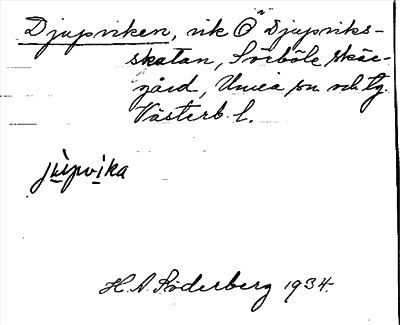 Djupviken, vik Ö Djupviks-
skatan, Sörböle skär-
gård, Umeå sn och tg.
Västerb. l.
jùpvika
H. A. Söderberg 1934.